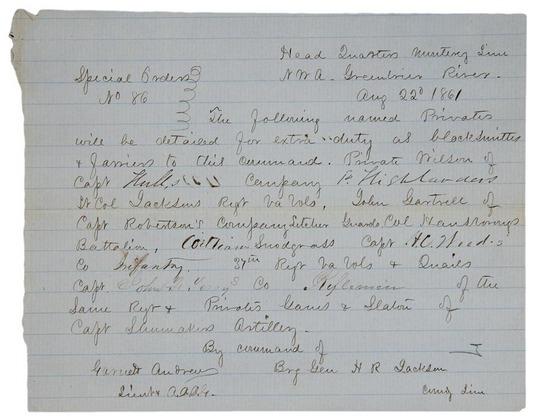 Head Quarters Monterey Line
Special Orders N.W.A. Greenbrier River.
No 86 Aug 22d 1861
The following named Privates
will be detailed for extra duty as blacksmiths
& farriers to this command. Private Wilson of
Capt Hull's Company P. Highlanders
Lt Col Jacksons Regt Va Vols, John Gartrell of
Capt Robertson's Company Letcher Guards, Col Hansbrough's
Battalion, William Snodgrass Capt H.C. Wood's
Co Infantry. 37th Regt Va Vols & Quails
Capt Co Riflemen of the
Same Regt & Privates Ganes & Slator of
Capt Shumakers Artillery.
By command of
Garnett Andrews Brg Gen H R Jackson
Lieut & A.A.A.G. Comdg Line